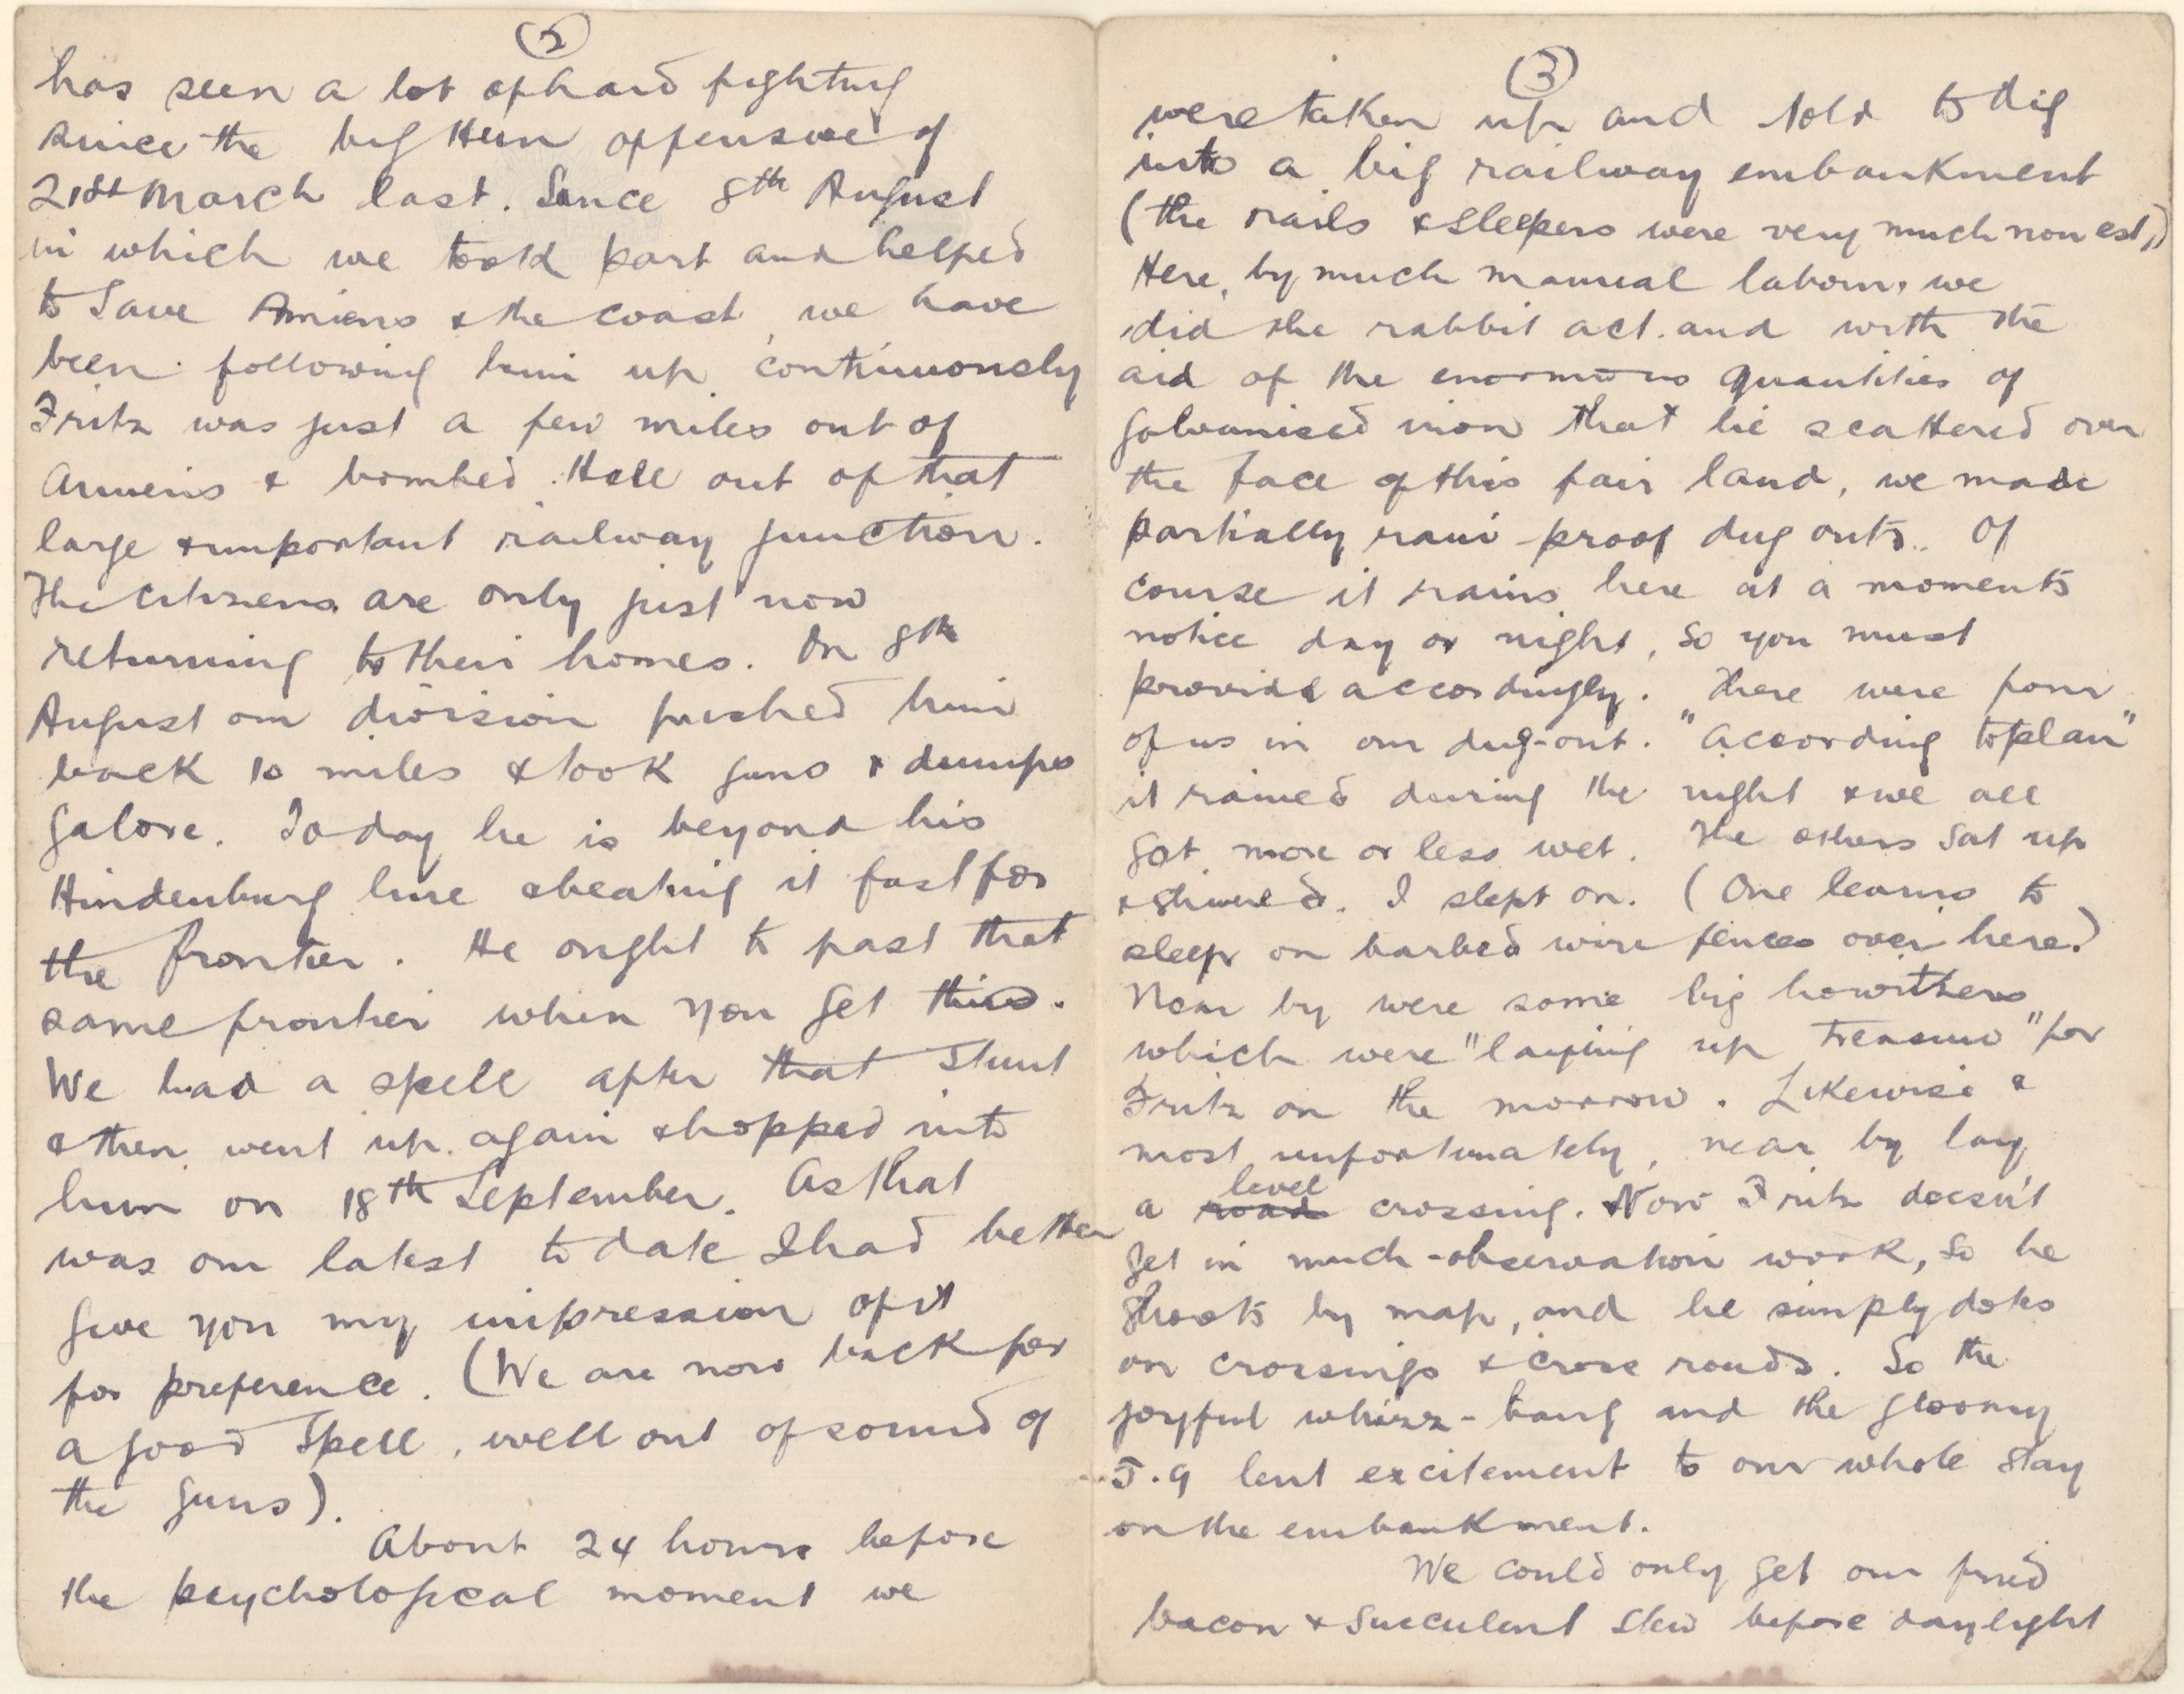 (2)
has seen a lot of hard fighting
since the big Hun offensive of
21st March last. Since 8th August
in which we took part and helped
to save Amiens & the coast we have
been following him up continuously
Fritz was just a few miles out of
Amiens & bombed Hell out of that
large & important railway junction.
The citizens are only just now
returning to their homes. On 8th
August our division pushed him
back 10 miles & took guns & dumps
galore. Today he is beyond his
Hindenburg line & beating it fast for
the frontier. He ought to past that
same frontier when you get this.
We had a spell after that stunt
& then went up again & hopped into
him on 18th September. As that
was our latest to date I had better
give you my impression of it
for preference. (We are now back for
a good spell, well out of sound of
the guns).
About 24 hours before
the psychological moment we
(3)
were taken up and told to dig
into a big railway embankment
(the rails & sleepers were very much non est,)
Here, by much manual labour, we
did the rabbit act. and with the
aid of the enormous quantities of
galvanised iron that lie scattered over
the face of this fair land, we made
partially rain-proof dug outs. Of
course it rains here at a moments
notice day or night, so you must
provide accordingly. There were four
of us in our dug-out. "According to plan"
it rained during the night & we all
got more or less wet. The others sat up
& shivered. I slept on. (One learns to
sleep on barbed wire fences over here.)
Near by were some big howitzers
which were "laying up treasure" for
Fritz on the morrow. Likewise &
most unfortunately, near by lay
a road level crossing. Now Fritz doesn't
get in much observation work, so he
shoots by map, and he simply dotes
on crossings & cross roads. So the
joyful whizz-bang and the gloomy
5.9 lent excitement to our whole stay
on the embankment.
We could only get our fried
bacon & succulent stew before daylight